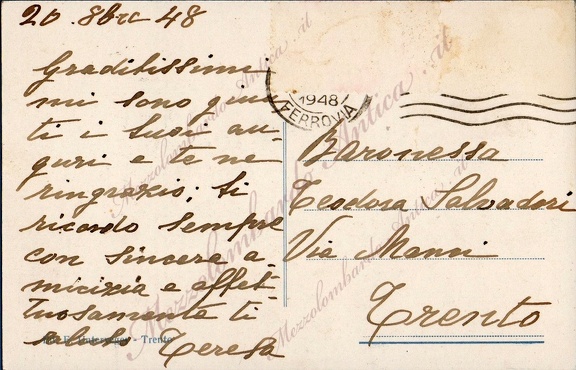 20. 8bre 48
Graditissimi
mi sono giun-
ti i tuoi au-
guri e te ne
ringrazio; Ti
ricordo sempre
con sincera a-
micizia e affet-
tuosamente ti
saluto Teresa
1948
FERROVIA
Baronessa
Teodora Salvadori
Via Manci
Trento
- Trento
Mezzolombardo Antica .it
Mezzolombardo Antica .it
Mezzolombardo Antica .it